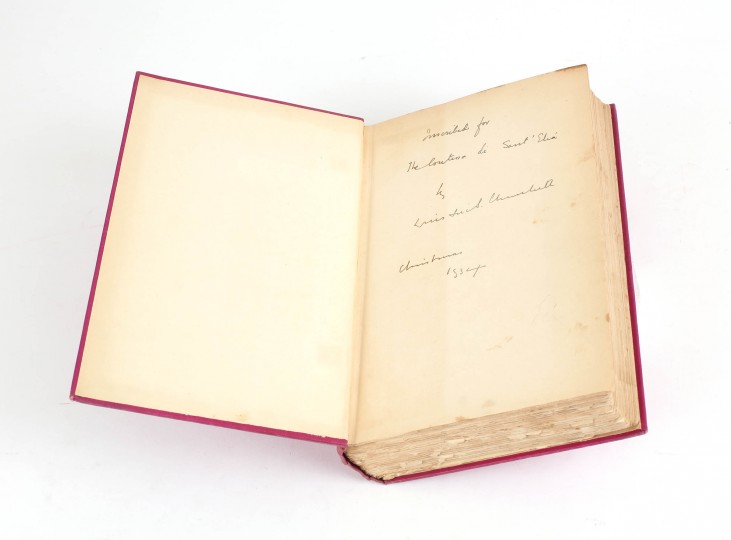 Inscribed for
The Contesa de Sant' Elia
by
Winston S. Churchill
Christmas
1934